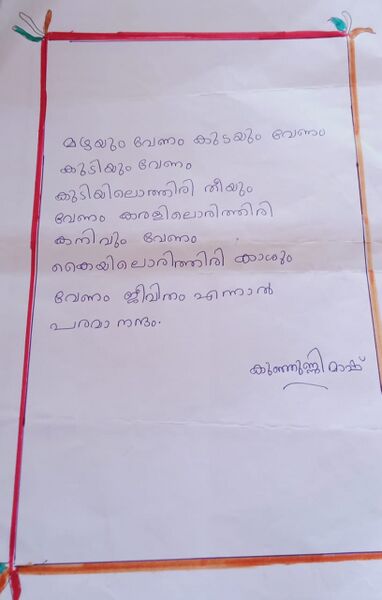 മഴയും വേണം കുടയും വേണം
കുടിയും വേണം
കുടിയിലൊത്തിരി തീയും
വേണം കരളിലൊരിത്തിരി
കനിവും വേണം
കൈയിലൊരിത്തിരി കാശും
വേണം ജീവിതം എന്നാൽ
പരമാനന്ദം.
കുഞ്ഞുണ്ണിമാഷ്